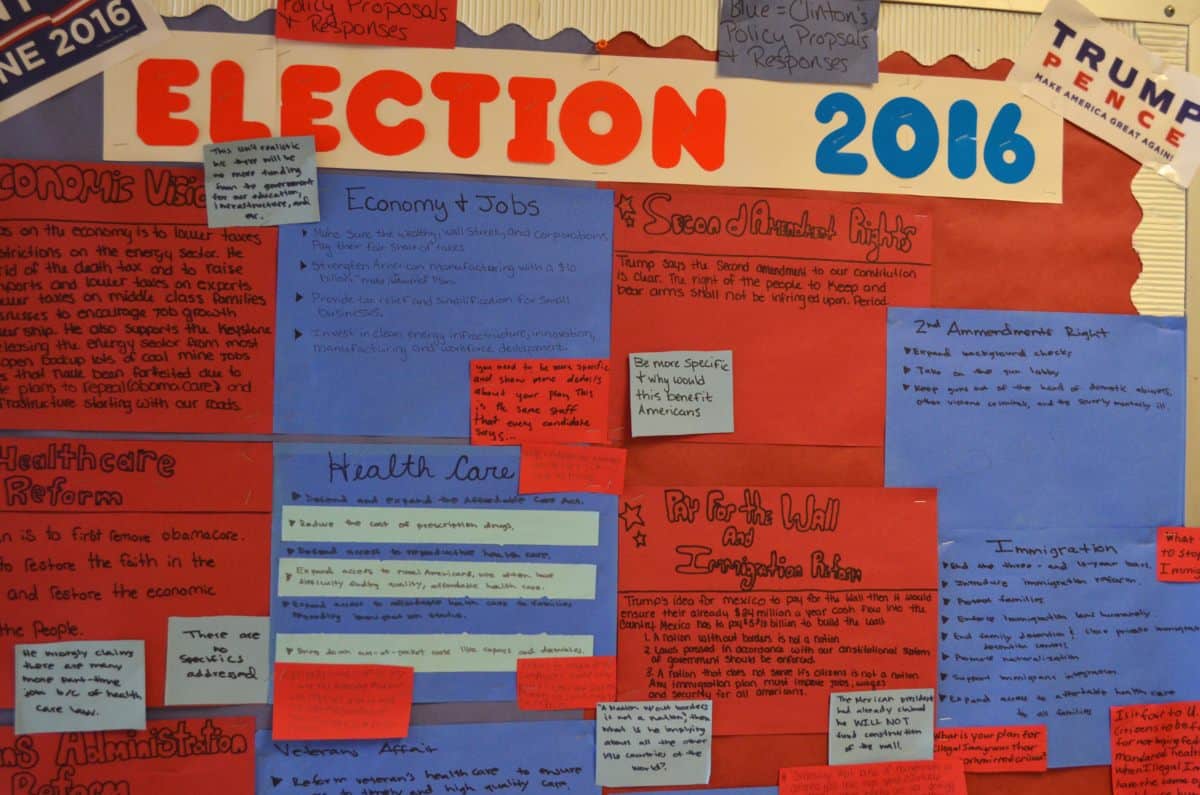 NE 2016
Policy Proposals
+ Responses
Blue = Clinton's
Policy Propsals
+ Responses
TRUMP
PENCE
MAKE AMERICA GREAT AGAIN!
ELECTION 2016
This isn't realistic
b/c there will be
no more funding
from the government
for our education,
infrastructure, and
etc.
conomic Vision
on the economy is to lower taxes
strictions on the energy sector. He
rid of the death tax and to raise
mports and lower taxes on exports
wer taxes on middle class families
sinesses to encourage job growth
ership. He also supports the Keystone
leasing the energy sector from most
open backup lots of coal mine jobs
s that have been forfeited due to
plans to repeal (obamacare) and
frastructure starting with our roads.
Economy + Jobs
Make sure the wealthy, Wall Street, and corporations
Pay their fair share of taxes
Strengthen American manufacturing with a $10
billion
Provide tax relief and simplification for small
businesses.
Invest in clean energy infrastructure, innovation,
manufacturing and workforce development.
you need to be more specific
and show more details
about your plan. This
is the same stuff
that every candidate
says...
Second Amendment Rights
Trump says the Second amendment to our constitution
is clear. The right of the people to Keep and
bear arms shall not be infringed upon. Period.
Be more Specific
+ why would
this benefit
Americans
2nd Ammendments Right
Expand background checks
Take on the gun lobby
Keep guns out of the hand of domestic abusers,
other violent criminals, and the severly mentally ill.
Healthcare
Reform
n is to first remove obamacare.
to restore the faith in the
and restore the economic
the People.
He wrongly claims
there are many
more part-time
jobs b/c of health
care law.
There are
no
specifics
addressed
Health Care
Defend and expand the Affordable Care Act.
Reduce the cost of prescription drugs.
Defend access to reproductive health care.
Expand access to rural Americans, who often have
difficulty finding quality, affordable health care.
Expand access to affordable health care to families
regardless of immigration status.
Bring down out-of-pocket costs like copays and deductibles.
Pay For the Wall
And
Immigration Reform
Trump's idea for mexico to pay for the Wall then it would
ensure their already $24 million a year cash flow into the
Country. Mexico has to pay $5-10 billion to build the wall
1. A nation without borders is not a nation
2. Laws passed in accordance with our constitutional system
of government should be enforced.
3. A nation that does not serve it's citizens is not a nation
Any immigration plan must improve jobs, wages
and security for all americans.
"A Nation w/out borders
is not a nation", then
what is he implying
about all the other
196 countries of the
World?
The Mexican president
had already claimed
he WILL NOT
fund construction
of the wall.
Immigration
End the three- and 10-year bars.
Introduce immigration reform.
Protect families
Enforce immigration laws humanely.
End family detention & close private immigration
detention centers
Promote naturalization
Support immigrant integration
Expand access to affordable health care
to all families
What
to Stop
Immig
What is your plan for
illegal immigrants that
committed crimes?
Is it fair to U.
Citizens to be f
for not having Fed
mandated healt
when Illegal Im
have the same
ans Administration
Reform
Veterans Affair
Reform veteran's healthcare to ensure
to timely and high quality care.